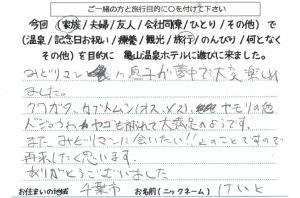 ご一緒の方と旅行目的に○を付けて下さい
今回(家族/夫婦/友人/会社同僚/ひとり/その他)で
(温泉/記念日お祝い/療養/観光/旅行/のんびり/何となく
その他)を目的に 亀山温泉ホテルに遊びに来ました。
みどりマンに息子が夢中で大変楽し
めました。
クワガタ、カブトムシ(オス、メス)、ヤモリの他
ヤゴも捕れて大満足のようです。
またみどりマンに会いたい!!とのことですので
再来したく思います。
ありがとうございました
お住まいの地域 千葉市 お名前(ニックネーム) けいと